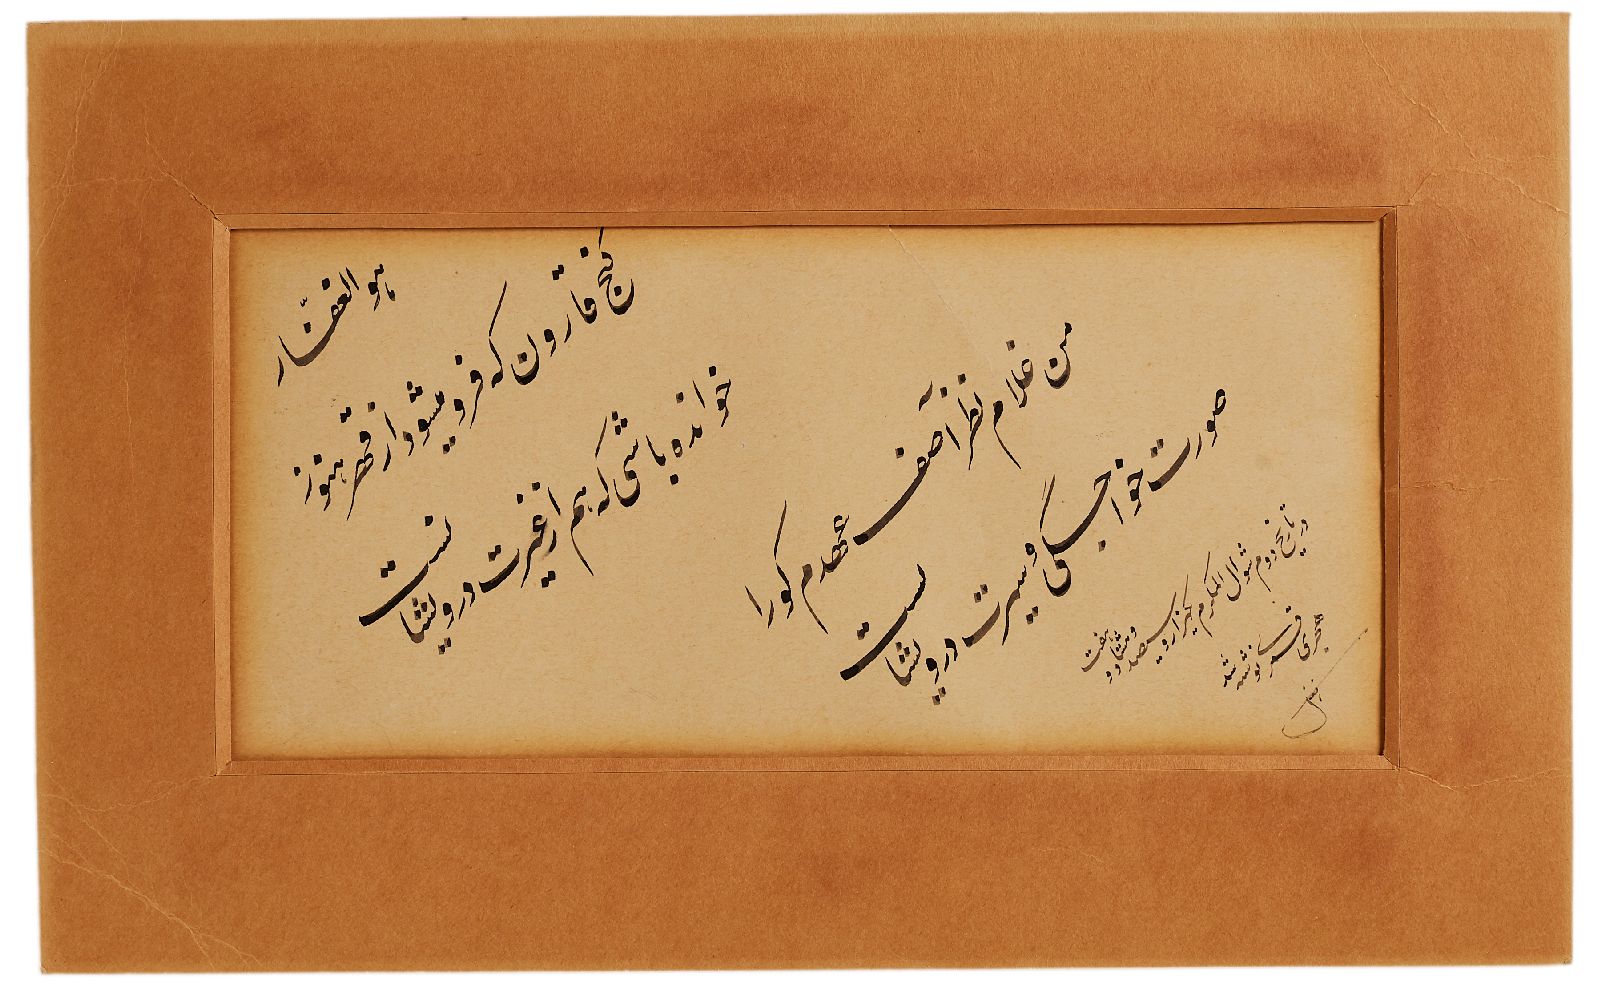 هو الغفّار
گنج قارون که فرو میشود از قهر هنوز
خوانده باشی که هم از غیرت درویشانست
من غلام نظر آصف عهدم کورا
صورت خواجگی و سیرت درویشانست
در تاریخ دوم شوال المکرم یکهزار و سیصد و هشتاد و هفت
هجری قمری نوشته شد